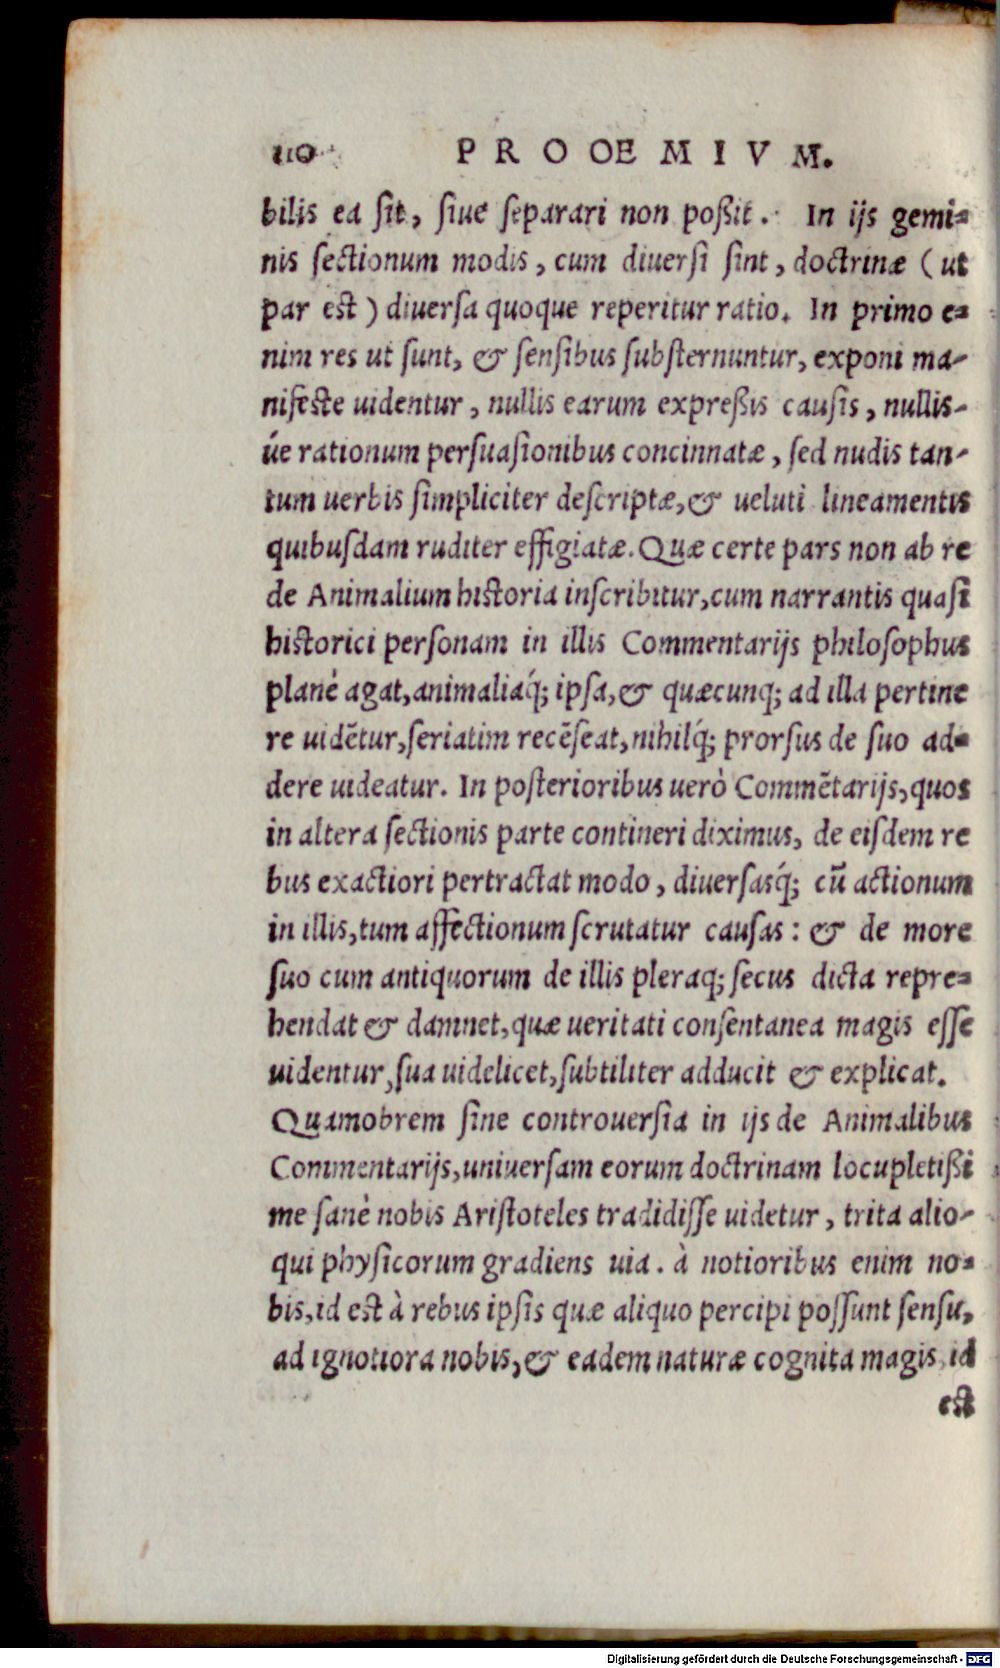 110 PROOEMIVM.
bilis ea ſit, ſiue ſeparari non poßit. In ijs gemi-
nis ſectionum modis, cum diuerſi ſint, doctrinæ (ut
par est) diuerſa quoque reperitur ratio. In primo e-
nim res ut ſunt, & ſenſibus ſubſternuntur, exponi ma-
nifeste uidentur, nullis earum expreßis cauſis, nullis-
úe rationum perſuaſionibus concinnatæ, ſed nudis tan-
tum uerbis ſimpliciter deſcriptæ, & ueluti lineamentis
quibuſdam ruditer effigiatæ. Quæ certe pars non ab re
de Animalium historia inſcribitur, cum narrantis quaſi
historici perſonam in illis Commentarijs philoſophus
planè agat, animaliaq́; ipſa, & quæcunq; ad illa pertine
re uidẽtur, ſeriatim recẽſeat, nihilq́; prorſus de ſuo ad-
dere uideatur. In posterioribus uerò Commẽtarijs, quos
in altera ſectionis parte contineri diximus, de eiſdem re
bus exactiori pertractat modo, diuerſasq́; cũ actionum
in illis, tum affectionum ſcrutatur cauſas: & de more
ſuo cum antiquorum de illis pleraq; ſecus dicta repre-
hendat & damnet, quæ ueritati conſentanea magis eſſe
uidentur, ſua uidelicet, ſubtiliter adducit & explicat.
Quamobrem ſine controuerſia in ijs de Animalibus
Commentarijs, uniuerſam eorum doctrinam locupletißi
me ſanè nobis Ariſtoteles tradidiſſe uidetur, trita alio-
qui phyſicorum gradiens uia. à notioribus enim no-
bis, id est à rebus ipſis quæ aliquo percipi poſſunt ſenſu,
ad ignotiora nobis, & eadem naturæ cognita magis, id
est
Digitalisierung gefördert durch die Deutsche Forschungsgemeinschaft - DFG